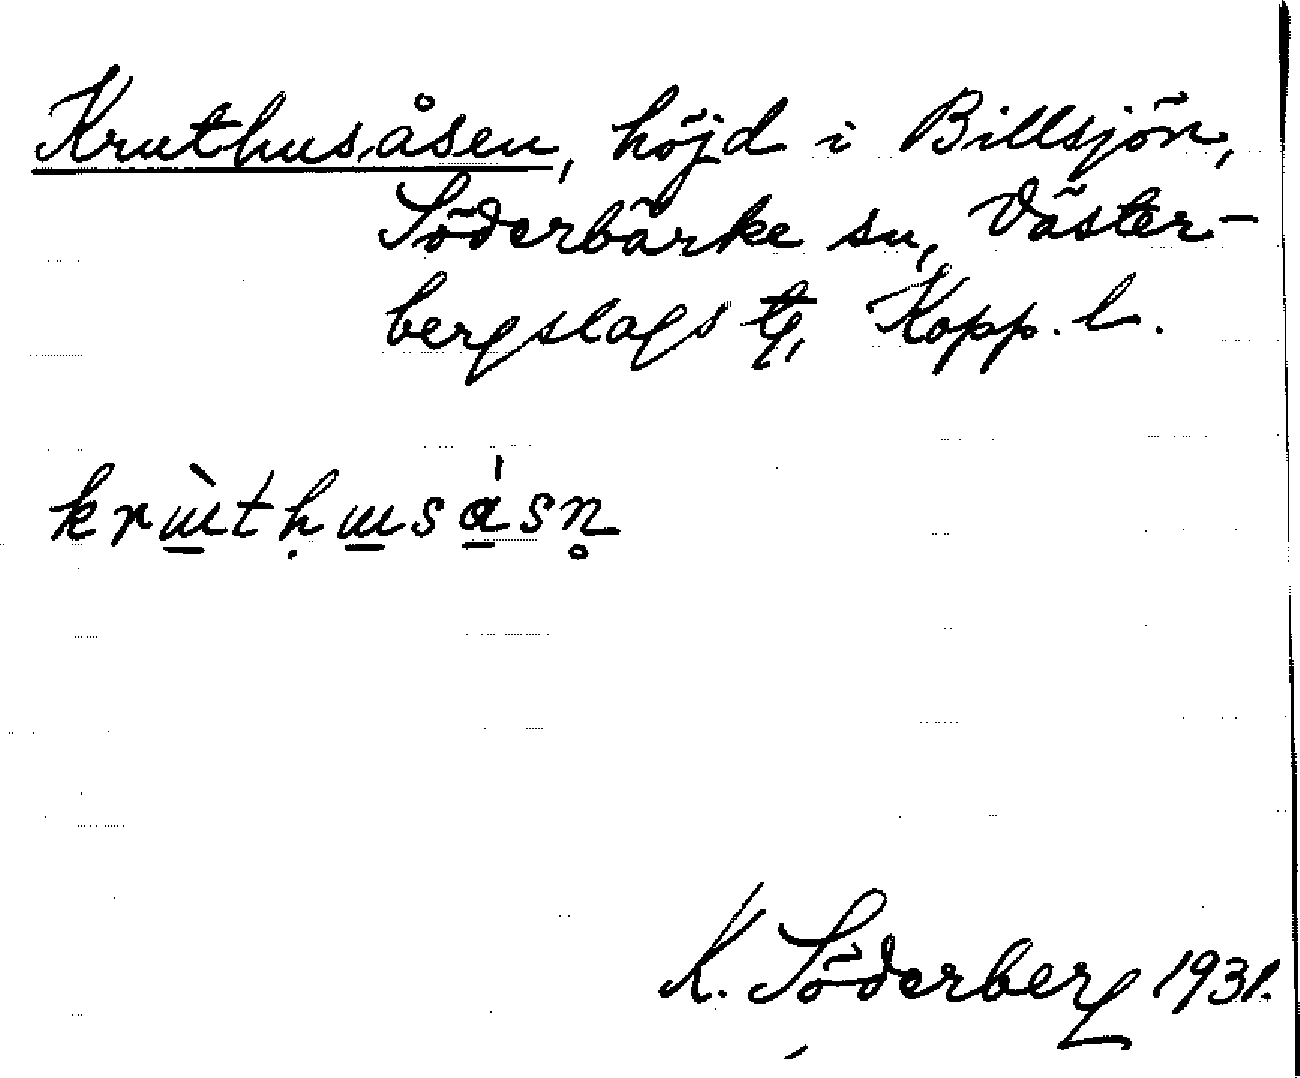 Kruthusåsen, höjd i Billsjön,
Söderbärke sn, Väster-
bergslags tg, Kopp. l.
krɯ̠̀tḥɯ̠sɑ̠́sn̥
K. Söderberg 1931.